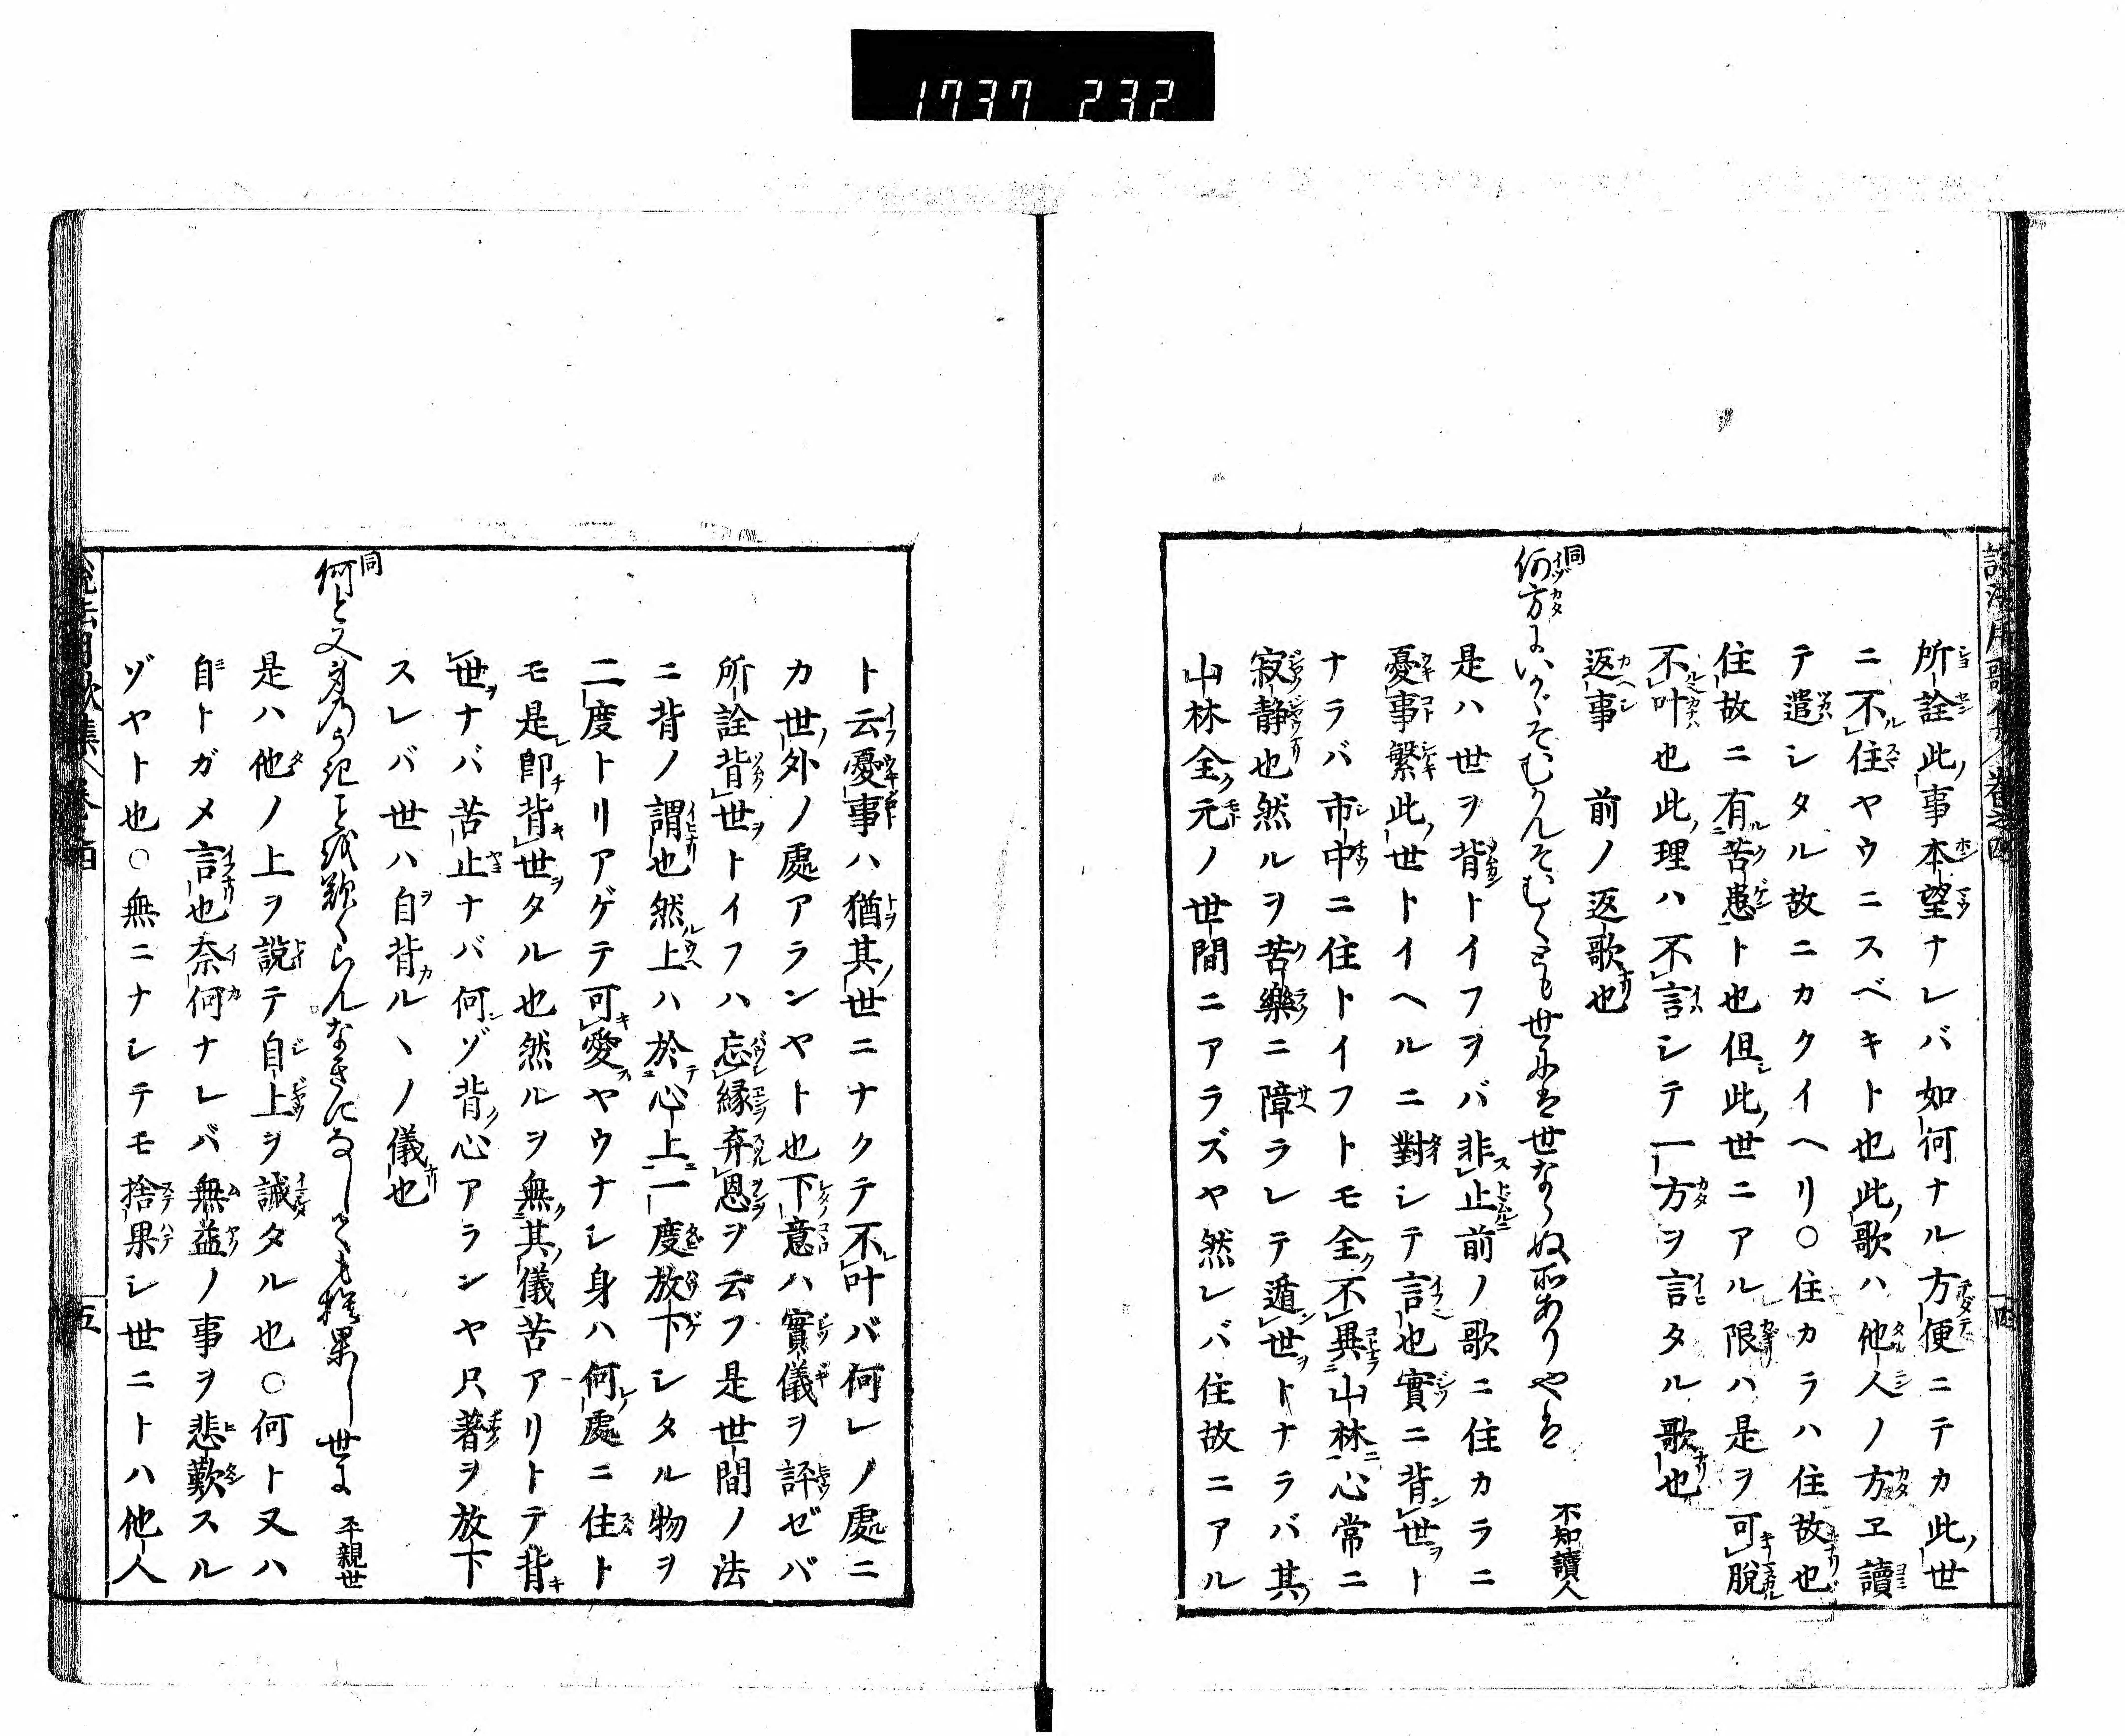 1737 232
所詮此事本望ナレバ如何ナル方便ニテカ此世
ニ不住ヤウニスベキト也此歌ハ他人ノ方ヱ讀
テ遣シタル故ニカクイヘリ○住カラハ住故也
住故ニ有苦患ト也但此世ニアル限ハ是ヲ可脱
不叶也此理ハ不言シテ一方ヲ言タル歌也
返事 前ノ返歌也
同
何方にいかゞそむかんそむくとも世には世ならぬ所ありやは 不知讀人
是ハ世ヲ背トイフヲバ非止前ノ歌ニ住カラニ
憂事繁此世トイヘルニ對シテ言也實ニ背世ト
ナラバ市中ニ住トイフトモ全不異山林心常ニ
寂静也然ルヲ苦樂ニ障ラレテ遁世トナラバ其
山林全元ノ世間ニアラズヤ然レバ住故ニアル
ト云憂事ハ猶其世ニナクテ不叶バ何レノ處ニ
カ世外ノ處アランヤト也下意ハ實儀ヲ評ゼバ
所詮背世トイフハ忘縁弃恩ヲ云フ是世間ノ法
ニ背ノ謂也然上ハ於心上一度放下シタル物ヲ
二度トリアゲテ可愛ヤウナシ身ハ何處ニ住ト
モ是即背世タル也然ルヲ無其儀苦アリトテ背
世ナバ苦止ナバ何ゾ背心アランヤ只著ヲ放下
スレバ世ハ自背ルヽノ儀也
同
何と又身のうきことを歎くらんなきになしても捨果し世に 平親世
是ハ他ノ上ヲ説テ自上ヲ誡タル也○何ト又ハ
自トガメ言也奈何ナレバ無益ノ事ヲ悲歎スル
ゾヤト也○無ニナシテモ捨果シ世ニトハ他人